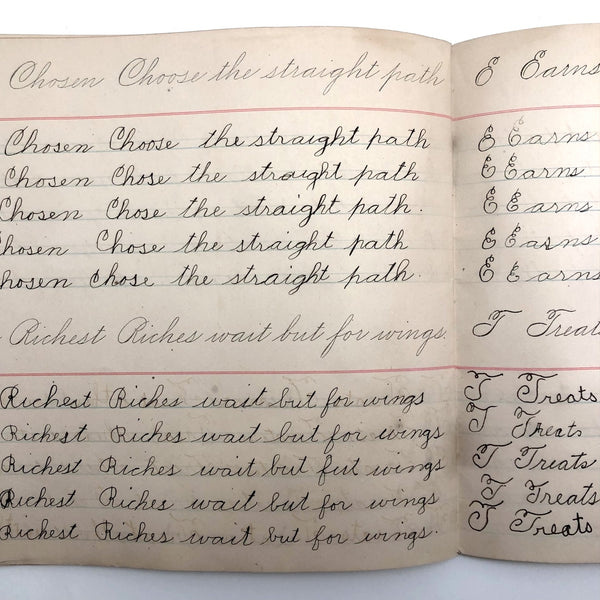 Chosen Choose the straight path
Chosen Choose the straight path
Chosen Chose the straight path
Chosen Chose the straight path.
Chosen Chose the straight path
Chosen chose the straight path.
Richest Riches wait but for wings.
Richest Riches wait but for wings
Richest Riches wait but for wings
Richest Riches wait but fut wings
Richest Riches wait but for wings
Richest Riches wait but for wings.
E Earns
E Earns
E Earns
E Earns
E Earns
E Earns
T Treats
T Treats
T Treats
T Treats
T Treats
T Treats